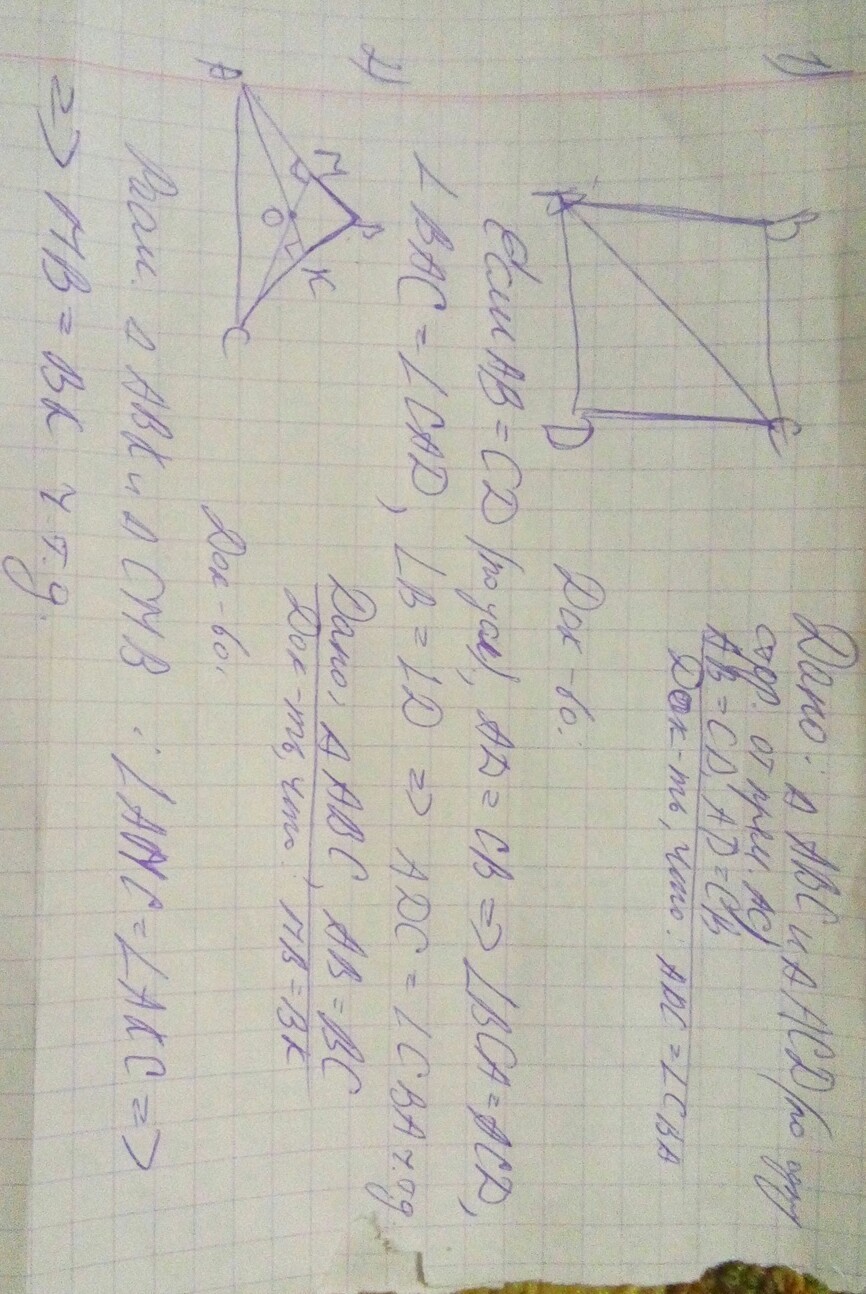 1)
B
C
A
D
Дано: Δ ABC и Δ ACD (по одну
стор. от прям. AC)
AB = CD, AD = CB
Док-ть, что: ADC = ∠CBA
Док-во:
Если AB = CD (по усл), AD = CB => ∠BCA = ACD,
∠BAC = ∠CAD, ∠B = ∠D => ADC = ∠CBA ч.т.д
2)
B
M
K
O
A
C
Дано: Δ ABC, AB = BC
Док-ть, что: MB = BK
Док-во:
Рассм. Δ ABK и Δ CMB: ∠AMC = ∠AKC =>
=> MB = BK ч.т.д.